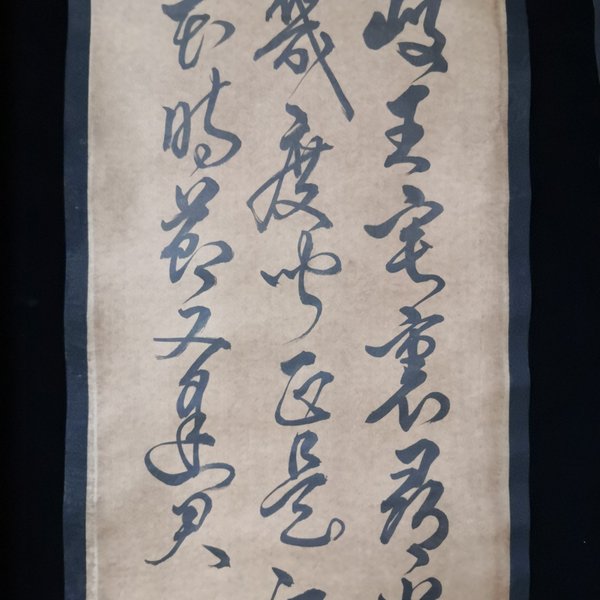 岐王宅裏尋
幾度聞正是
花時節又逢君